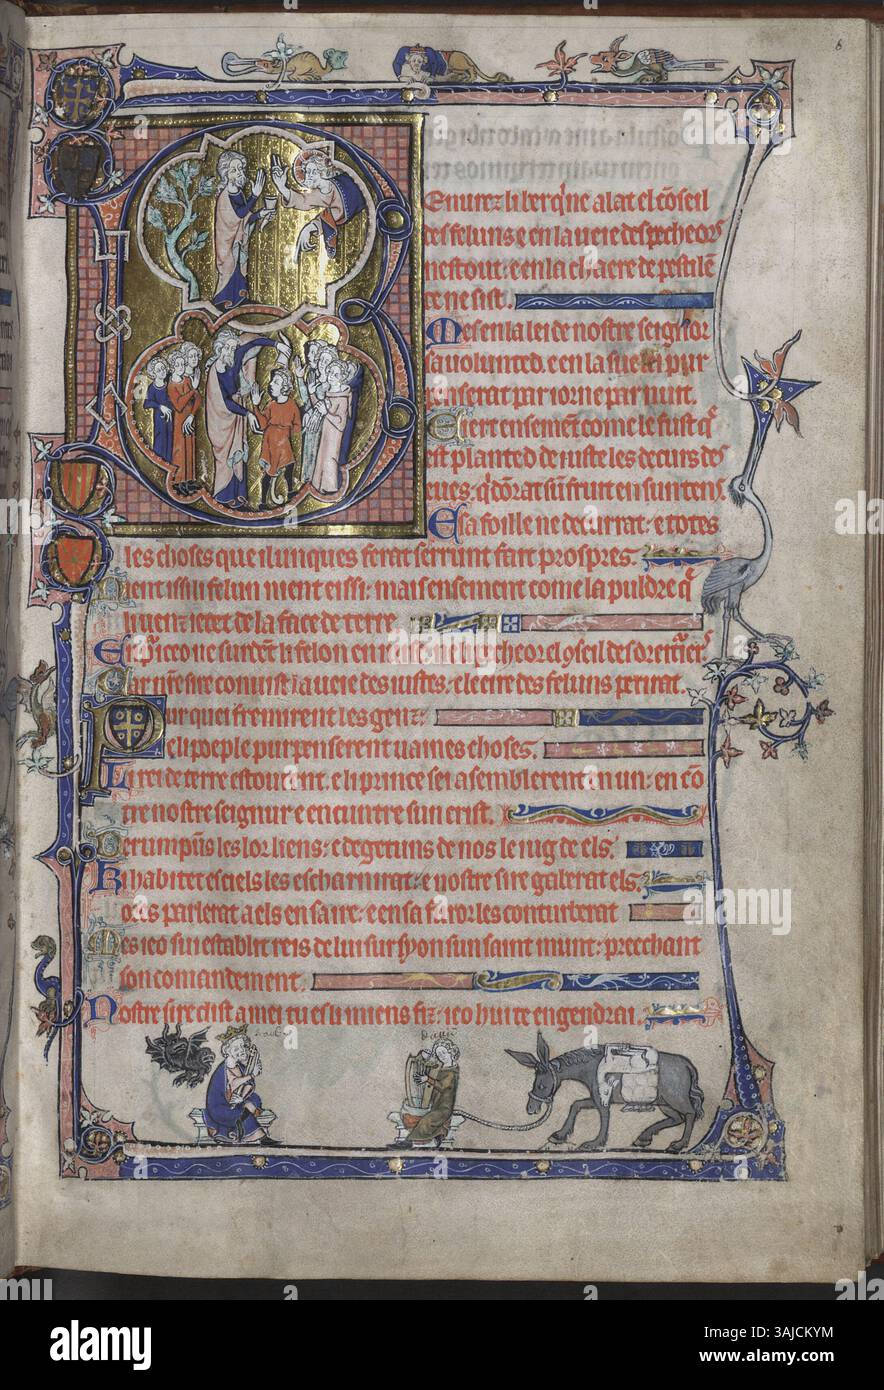 6
Eneurez li ber q'ne alat el cõseil
des feluns e en la ueie des pecheors
nestout: e en la chaere de pestilẽ
ce ne sist.
Mes en la lei de nostre seignor
sa uolunted. e en la sue lei pur
penserat par iorn e par nuit.
Eiert ensement come le fust q'
est planted de iuste les decurs des
eues. q' dorat sũ fruit en sun tens.
E sa foille ne decurrat. e totes
les choses que il unques ferat serrunt fait prospres.
Nient issi li felun nient eissi: mais ensement come la puldre q'
li uenz iettet de la face de terre
li felon en iuise ne li pecheor el
nre sire conuist la ueie des iustes. e le eire des feluns perirat.
Pur quei fremirent les genz:
e li poeple purpenserent uaines choses.
Li rei de terre estourent. e li prince sei asemblerent en un: en cõ
tre nostre seignur e encuntre sun crist.
Derumpũs les lor liens: e degetuns de nos le iug de els.
Ki habite es ciels les escharnirat: e nostre sire gaberat els.
parlerat a els en sa ire: e en sa furor les conturberat
Mes ieo sui establit reis de lui sur syon sun saint munt: preechant
son comandement.
Nostre sire dist a mei tu es li miens fiz: ieo hui te engendrai.
alamy
Image ID: 3AJCKYM
www.alamy.com